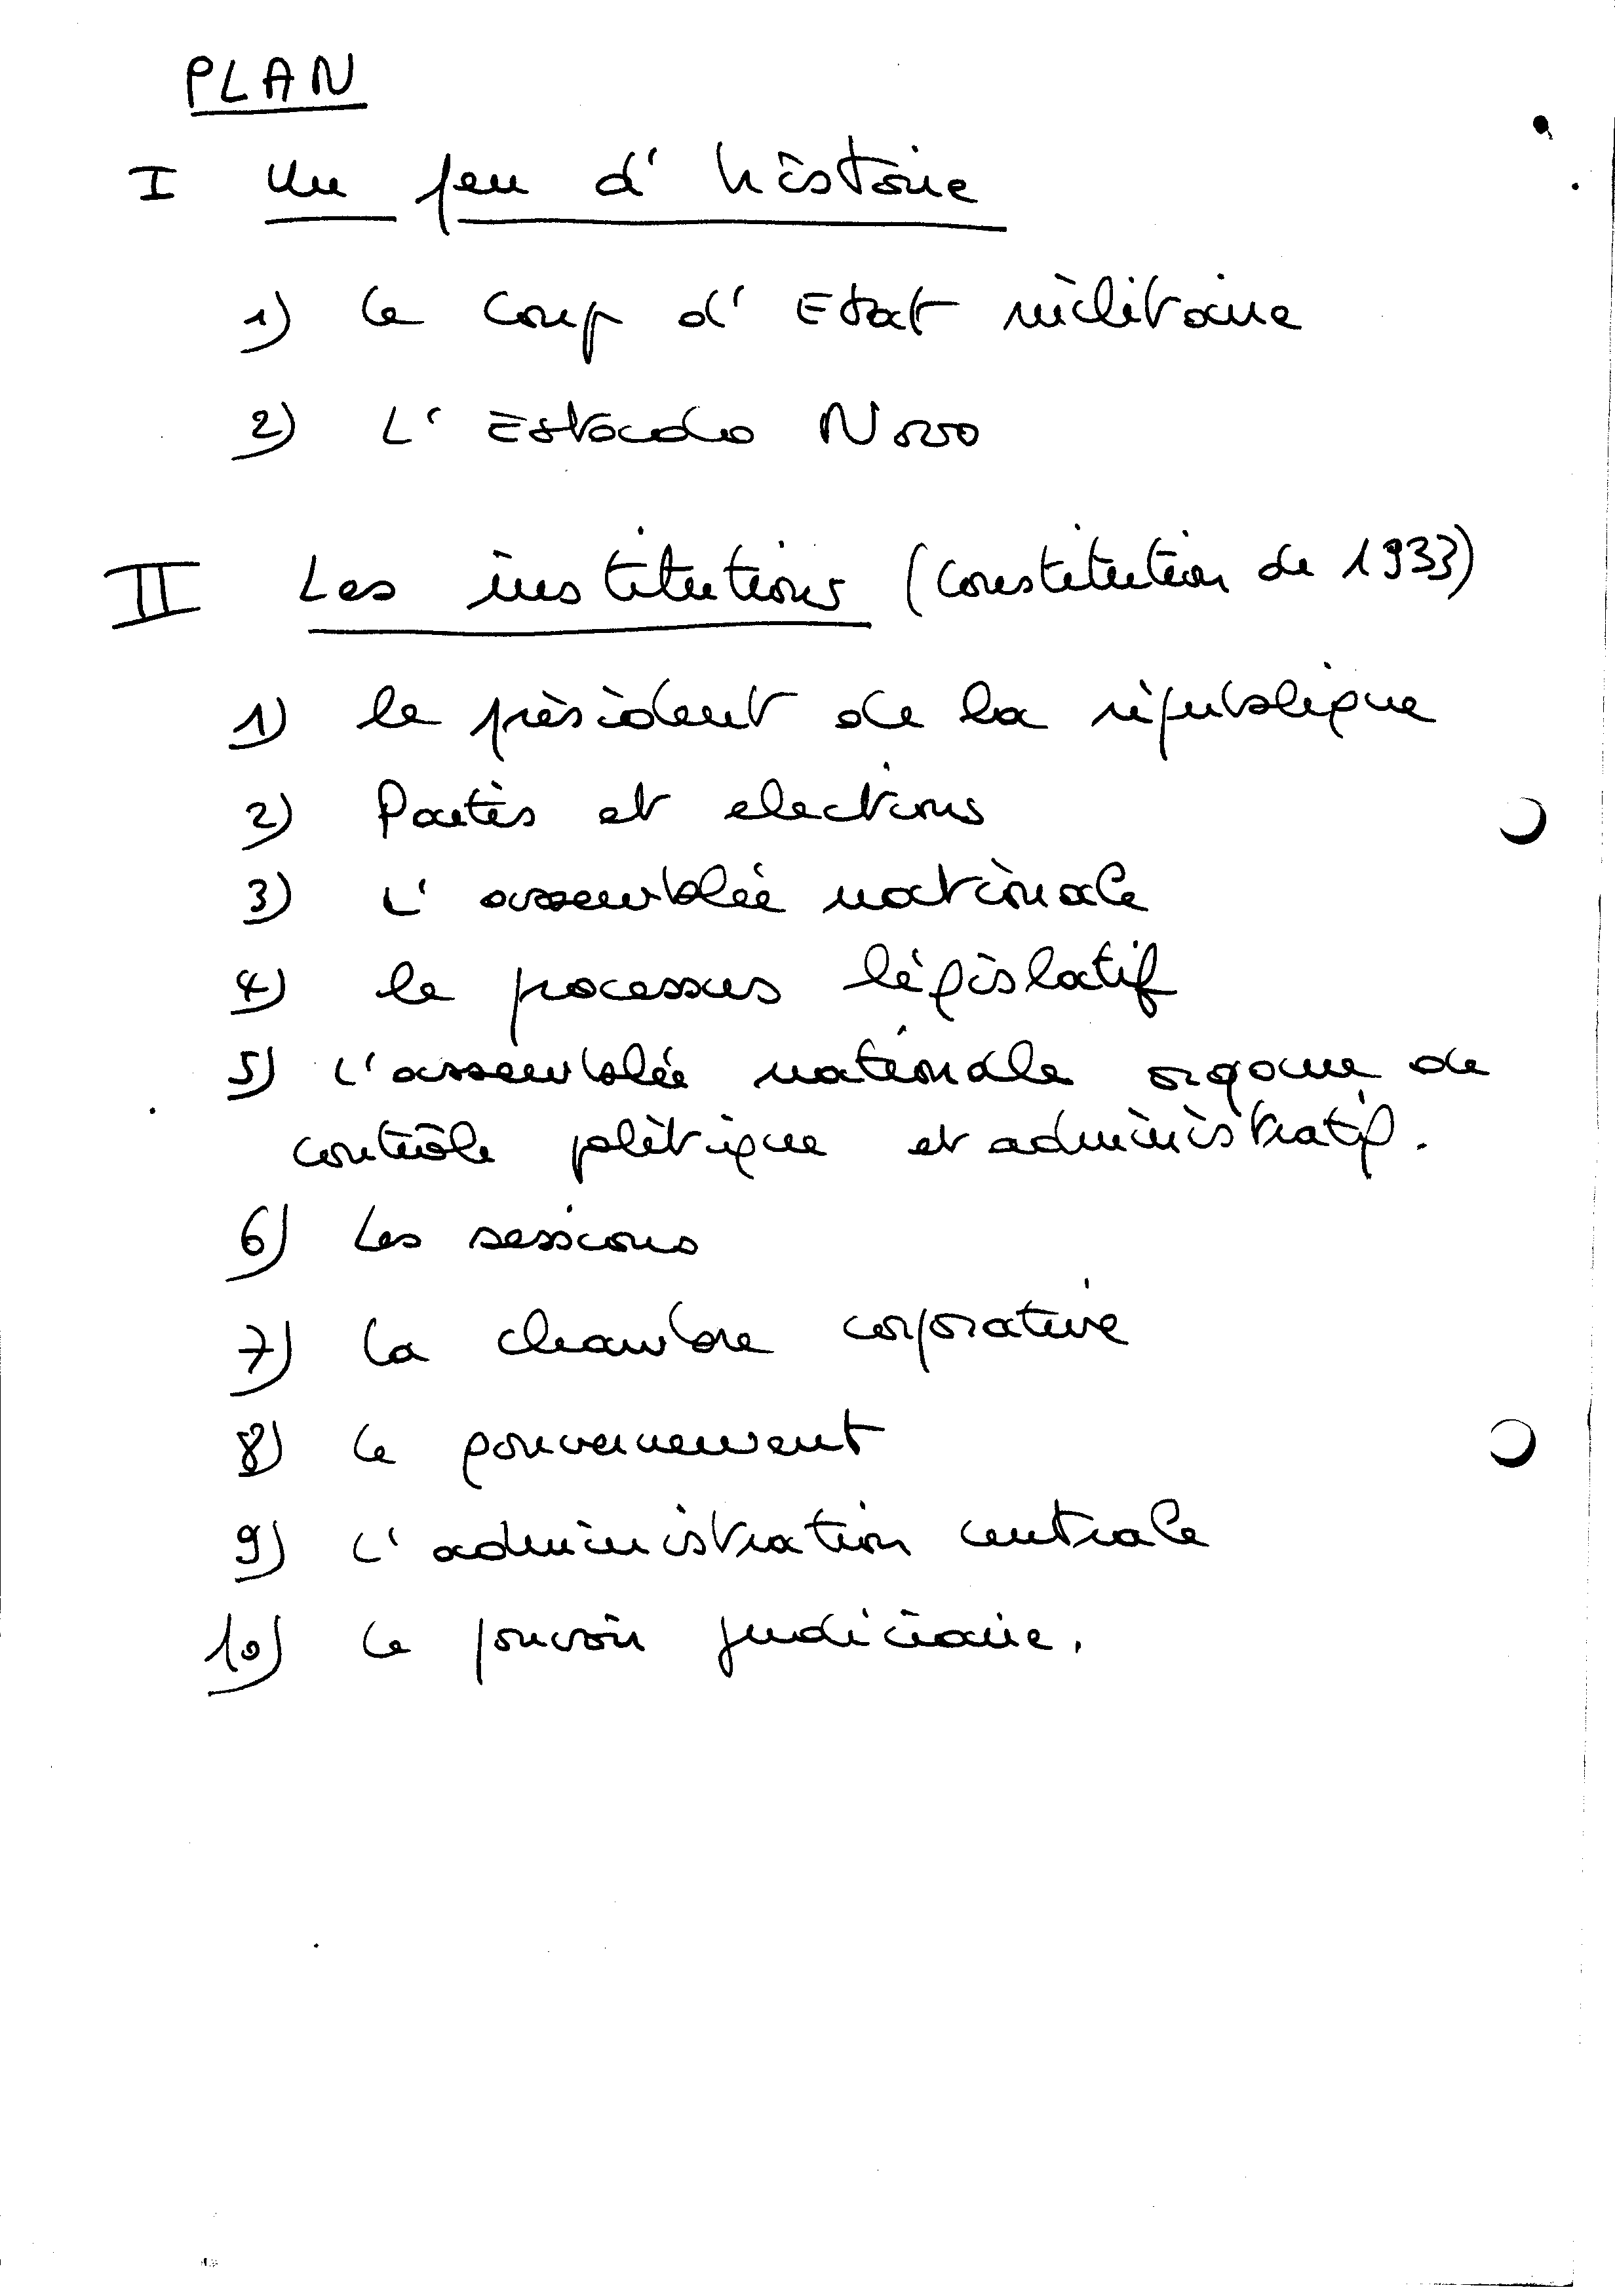 PLAN
I Un peu d'histoire
1) Le Coup d'Etat militaire
2) L'Estado Novo
II Les institutions (Constitution de 1933)
1) le président de la république
2) Partis et elections
3) L'assemblée nationale
4) le processus législatif
5) L'assemblée nationale organe de
contrôle politique et administratif.
6) Les sessions
7) La chambre corporative
8) Le gouvernement
9) L'administration centrale
10) Le pouvoir judiciaire.